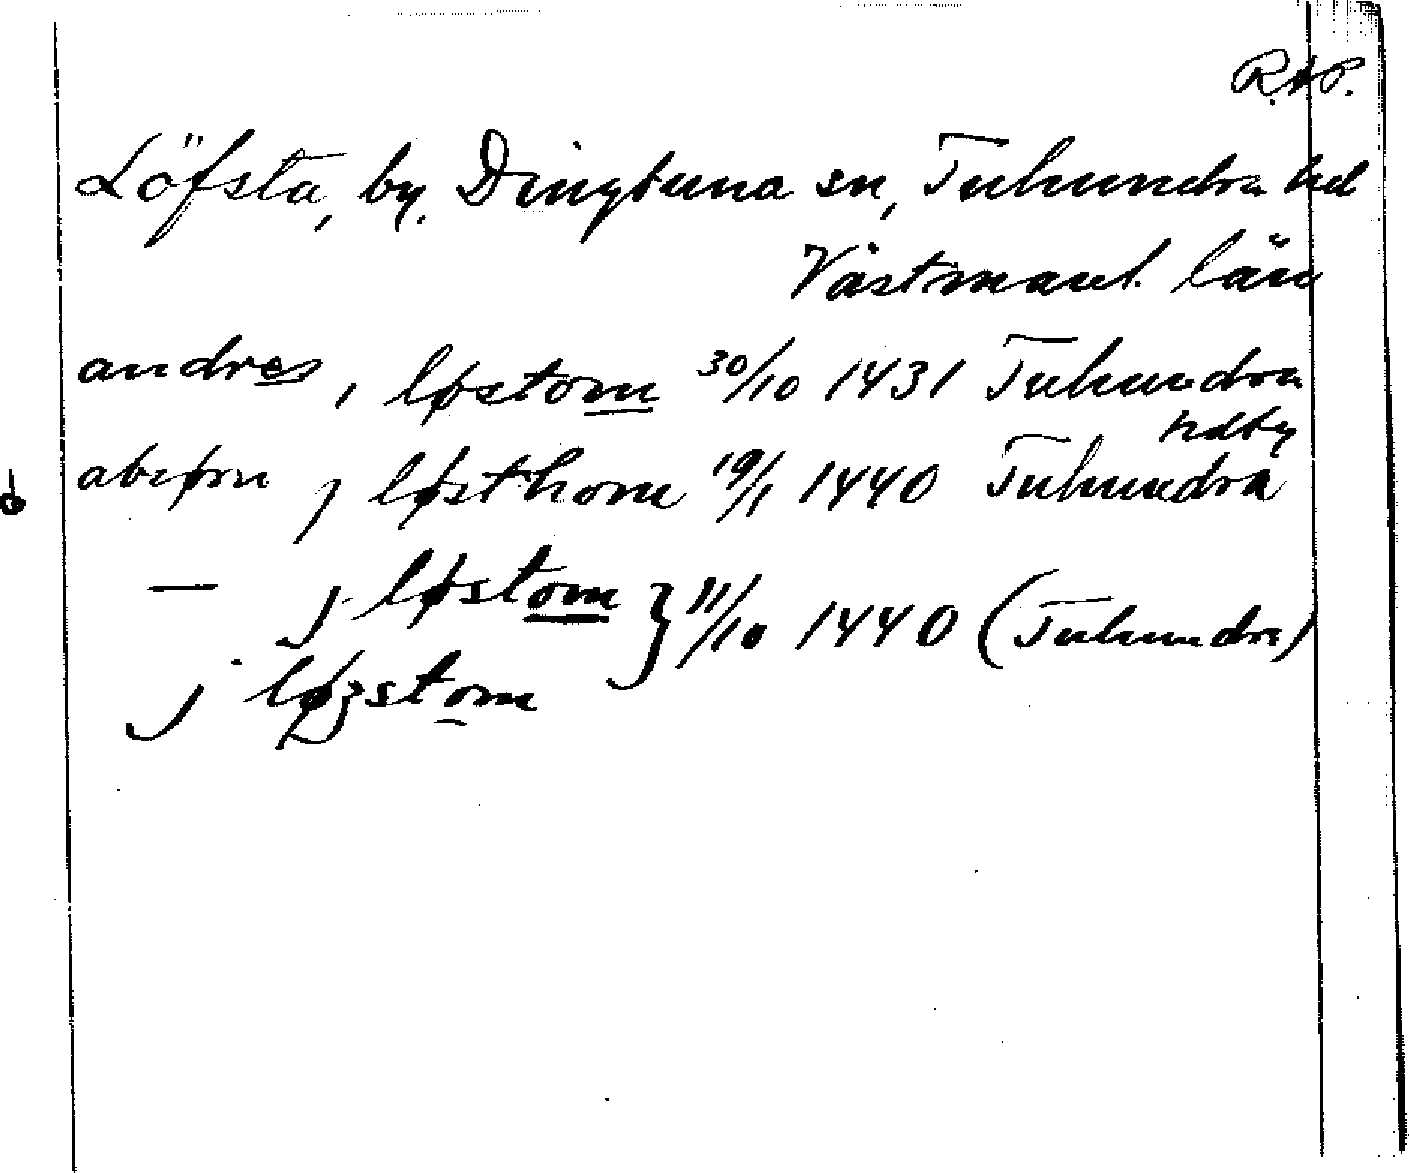 R.A.P.
Löfsta, by. Dingtuna sn, Tuhundra hd
Västmanl. län
andres, løstom 30/10 1431 Tuhundra
hdby
abiørn j løsthom 19/1 1440 Tuhundra
— j løstom } 11/10 1440 (Tuhundra)
j løzstom